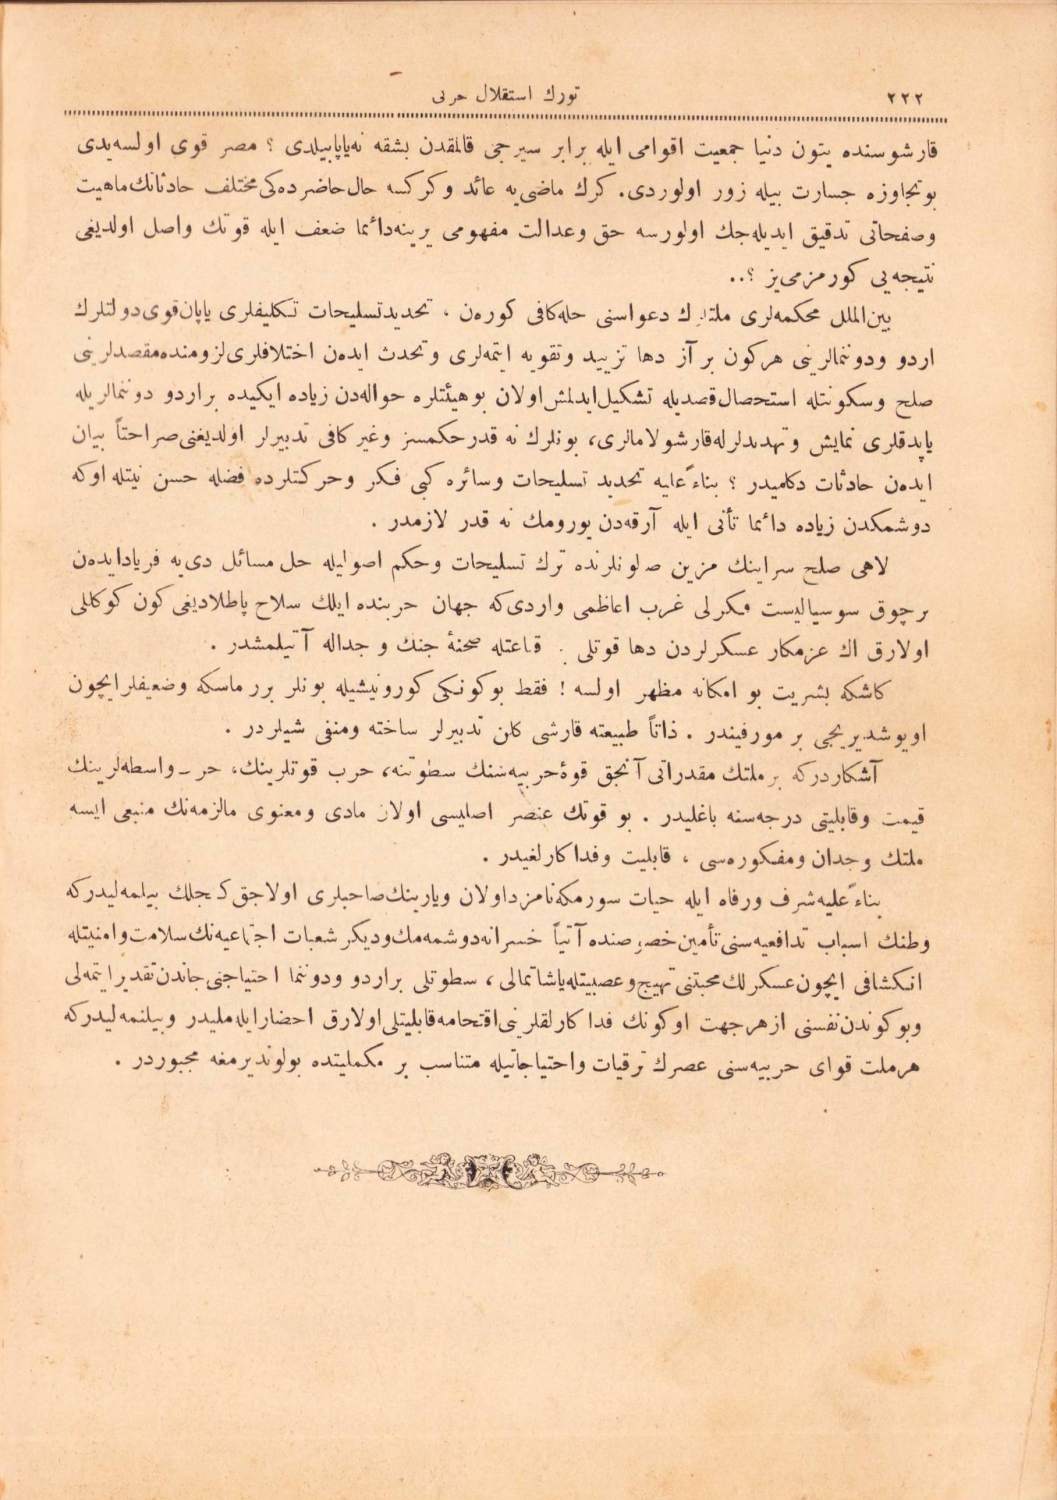 ٢٢٢
تورك استقلال حربی
قارشوسنده بتون دنیا جمعیت اقوامی ایله برابر سیرجی قالمقدن بشقه نه‌یاپابیلدی ؟ مصر قوی اولسه‌یدی
بوتجاوزه جسارت بیله زور اولوردی. كرك ماضی‌یه عائد وكركسه حال‌حاضرده‌كی مختلف حادثاتك ماهیت
وصفحاتی تدقیق ایدیله‌جك اولورسه حق وعدالت مفهومی یرینه‌دائما ضعف ایله قوتك واصل اولدیغی
نتیجه‌یی كورمزمی‌یز ؟..
بین‌الملل محكمه‌لری ملتلرك دعواسنی حله‌كافی كوره‌ن ، تحدیدتسلیحات تكلیفلری یاپان‌قوی‌دولتلرك
اردو ودوننمالرینی هركون بر آز دها تزیید وتقویه ایتمه‌لری وتحدث ایده‌ن اختلافلری‌لزومنده‌مقصدلرینی
صلح وسكونتله استحصال‌قصدیله تشكیل‌ایدلمش‌اولان بوهیئتلره حواله‌دن زیاده ایكیده براردو دوننمالریله
یاپدقلری نمایش وتهدیدلرله‌قارشولامالری، بونلرك نه قدرحكمسز وغیركافی تدبیرلر اولدیغنی‌صراحتاً بیان
ایده‌ن حادثات دكلمیدر ؟ بناءً علیه تحدید تسلیحات وسائره كبی فكر وحركتلرده فضله حسن نیتله اوكه
دوشمكدن زیاده دائما تأنی ایله آرقه‌دن یورومك نه قدر لازمدر .
لاهی صلح سراینك مزین صالونلرنده ترك تسلیحات وحكم اصولیله حل مسائل دی‌یه فریادایده‌ن
برچوق سوسیالیست فكرلی غرب اعاظمی واردی‌كه جهان حربنده ایلك سلاح پاطلادیغی كون كوكللی
اولارق اك عزمكار عسكرلردن دها قوتلی قناعتله صحنهٔ جنك و جداله آتیلمشدر .
كاشكه بشریت بو امكانه مظهر اولسه ! فقط بوكونكی كورونیشیله بونلر برر ماسكه وضعیفلرایچون
اویوشدیریجی بر مورفیندر . ذاتاً طبیعته قارشی كلن تدبیرلر ساخته ومنفی شیلردر .
آشكاردركه برملتك مقدراتی آنجق قوهٔ حربیه‌سنك سطوتنه، حرب قوتلرینك، حرب واسطه‌لرینك
قیمت وقابلیتی درجه‌سنه باغلیدر . بو قوتك عنصر اصلیسی اولان مادی ومعنوی مالزمه‌نك منبعی ایسه
ملتك وجدان ومفكوره‌سی ، قابلیت وفداكارلغیدر .
بناءً علیه‌شرف ورفاه ایله حیات سورمكه‌نامزداولان ویارینك‌صاحبلری اولاجق‌كنجلك بیلمه‌لیدركه
وطنك اسباب تدافعیه‌سنی‌تأمین‌خصوصنده‌آتیاً خسرانه‌دوشمه‌مك‌ودیكرشعبات اجتماعیه‌نك‌سلامت‌وامنیتله
انكشافی ایچون‌عسكرلك‌محبتنی‌تهییج‌وعصبیتله‌یاشاتمالی ، سطوتلی براردو ودوننما احتیاجنی‌جاندن‌تقدیرایتمه‌لی
وبوكوندن‌نفسنی ازهرجهت اوكونك فداكارلقلرینی‌اقتحامه‌قابلیتلی‌اولارق احضارایله‌ملیدر وبیلنمه‌لیدركه
هرملت قوای حربیه‌سنی عصرك ترقیات واحتیاجاتیله متناسب بر مكملیتده بولوندیرمغه مجبوردر .